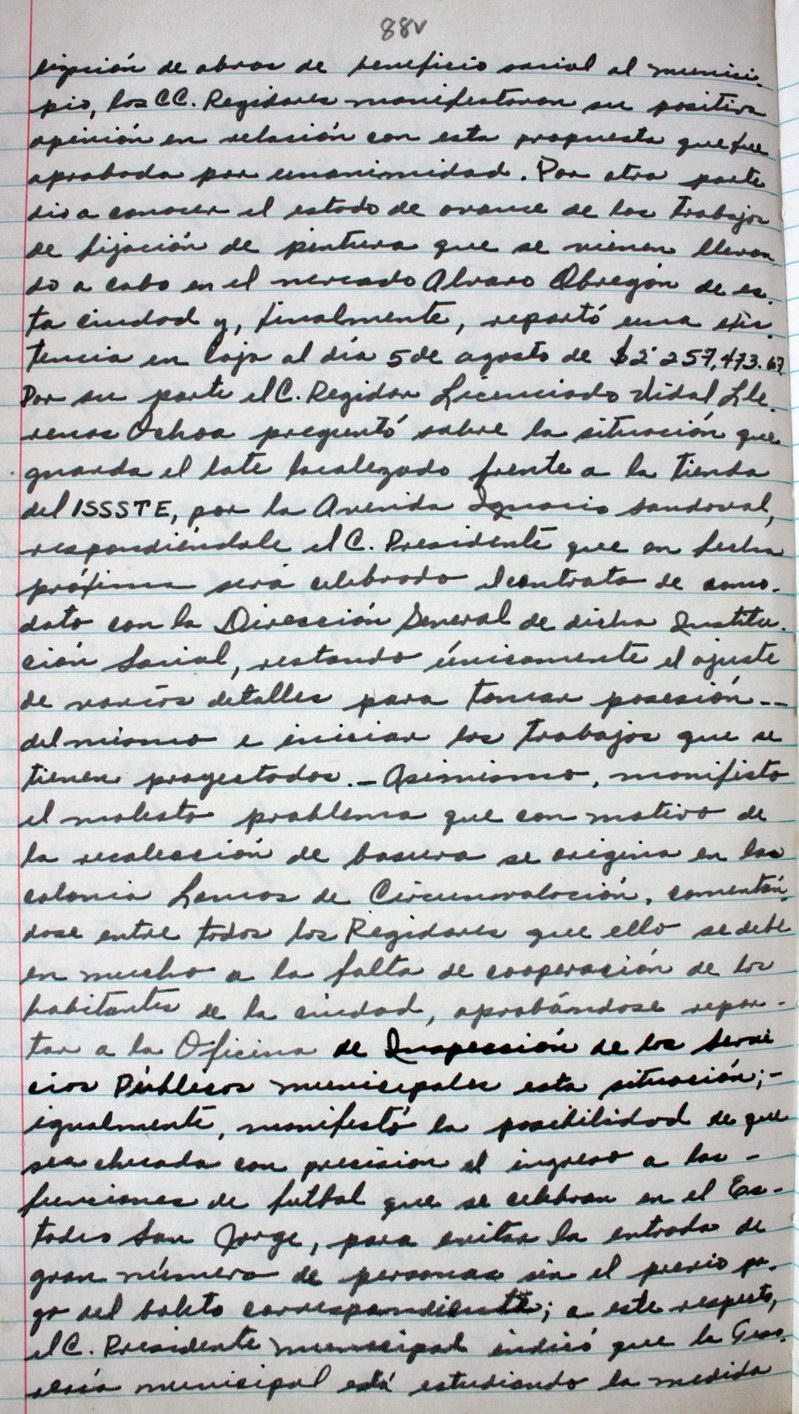 88v
lización de obras de beneficio social al munici-
pio, los CC. Regidores manifestaron su positiva
opinión en relación con esta propuesta que fue
aprobada por unanimidad. Por otra parte
dio a conocer el estado de avance de los trabajos
de fijación de pintura que se vienen llevan
do a cabo en el mercado Alvaro Obregón de es-
ta ciudad y, finalmente, reportó una exis-
tencia en caja al día 5 de agosto de $2'257,473.67
Por su parte el C. Regidor Licenciado Vidal Lle-
renas Ochoa preguntó sobre la situación que
guarda el lote localizado frente a la tienda
del ISSSTE, por la Avenida Ignacio Sandoval,
respondiéndole el C. Presidente que en fecha
próxima será celebrado el contrato de como-
dato con la Dirección General de dicha Institu-
ción Social, restando únicamente el ajuste
de varios detalles para tomar posesión --
del mismo e iniciar los trabajos que se
tienen proyectados. - Asimismo, manifisto
el molesto problema que con motivo de
la recolección de basura se origina en las
colonia Lomas de Circunvalación, comentán-
dose entre todos los Regidores que ello se debe
en mucho a la falta de cooperación de los
habitantes de la ciudad, aprobándose repor-
tar a la Oficina de Inspección de los Servi
cios Públicos municipales esta situación; -
igualmente, manifestó la posibilidad de que
sea checada con precision el ingreso a las -
funciones de futbol que se celebran en el Es-
tadio San Jorge, para evitar la entrada de
gran número de personas sin el previo pa-
go del boleto correspondiente; a este respecto,
el C. Presidente municipal indicó que la Teso-
rería municipal está estudiando la medida